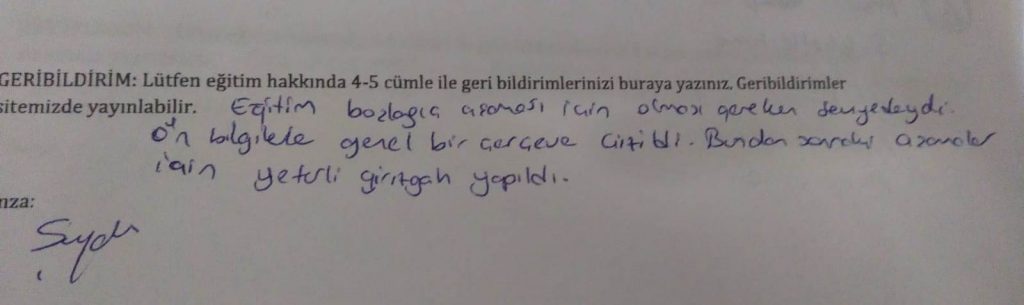 GERİBİLDİRİM: Lütfen eğitim hakkında 4-5 cümle ile geri bildirimlerinizi buraya yazınız. Geribildirimler
sitemizde yayınlabilir. Eğitim başlagıç aşaması için olması gereken seviyedeydi.
Ön bilgilele genel bir çerçeve çizildi. Bundan sonraki aşamalar
için yeterli girizgah yapıldı.
mza: